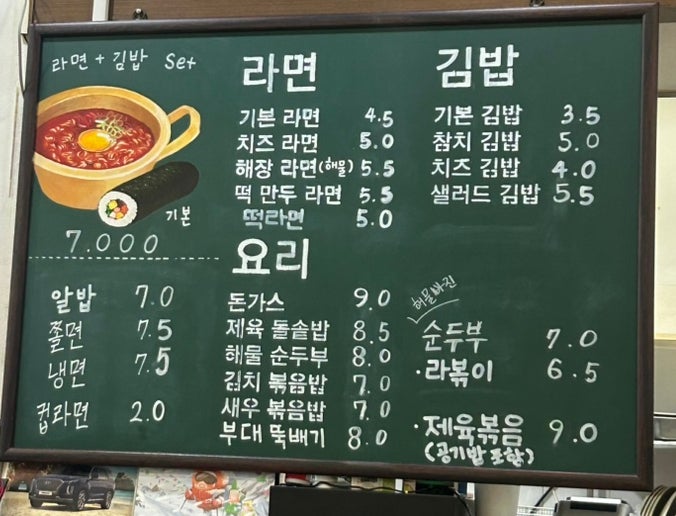 라면 + 김밥 Set
기본
7.000
알밥 7.0
쫄면 7.5
냉면 7.5
컵라면 2.0
라면
기본 라면 4.5
치즈 라면 5.0
해장 라면(해물) 5.5
떡 만두 라면 5.5
떡라면 5.0
김밥
기본 김밥 3.5
참치 김밥 5.0
치즈 김밥 4.0
샐러드 김밥 5.5
요리
돈가스 9.0
제육 돌솥밥 8.5
해물 순두부 8.0
김치 볶음밥 7.0
새우 볶음밥 7.0
부대 뚝배기 8.0
해물빠진
순두부 7.0
·라볶이 6.5
·제육볶음 9.0
(공기밥 포함)